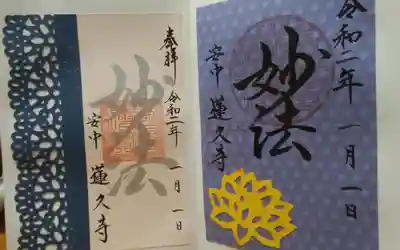 奉拝
令和二年
一月一日
妙法
安中
蓮久寺
令和二年
一月一日
妙法
安中
蓮久寺